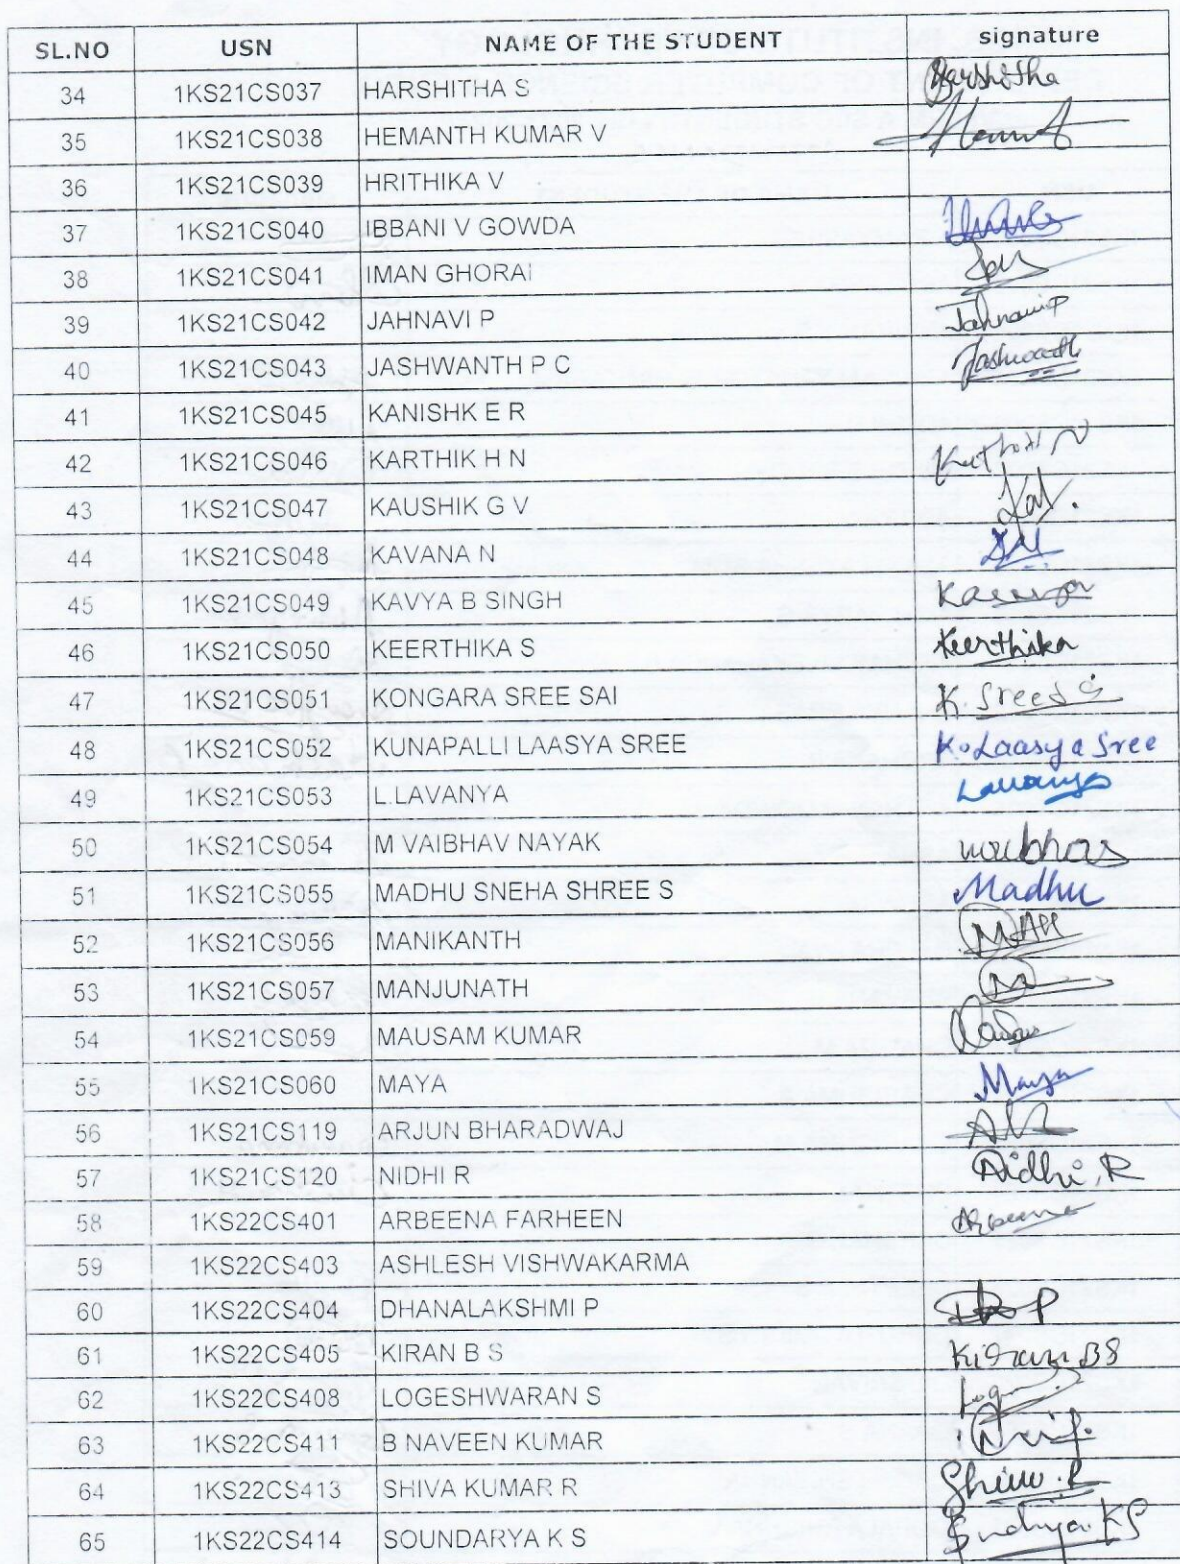 SL.NO USN NAME OF THE STUDENT signature
34 1KS21CS037 HARSHITHA S Harshitha
35 1KS21CS038 HEMANTH KUMAR V
36 1KS21CS039 HRITHIKA V
37 1KS21CS040 IBBANI V GOWDA
38 1KS21CS041 IMAN GHORAI
39 1KS21CS042 JAHNAVI P Jahnavi P
40 1KS21CS043 JASHWANTH P C Jashwanth
41 1KS21CS045 KANISHK E R
42 1KS21CS046 KARTHIK H N
43 1KS21CS047 KAUSHIK G V
44 1KS21CS048 KAVANA N
45 1KS21CS049 KAVYA B SINGH
46 1KS21CS050 KEERTHIKA S Keerthika
47 1KS21CS051 KONGARA SREE SAI
48 1KS21CS052 KUNAPALLI LAASYA SREE K. Laasya Sree
49 1KS21CS053 L.LAVANYA Lavanya
50 1KS21CS054 M VAIBHAV NAYAK
51 1KS21CS055 MADHU SNEHA SHREE S Madhu
52 1KS21CS056 MANIKANTH
53 1KS21CS057 MANJUNATH
54 1KS21CS059 MAUSAM KUMAR
55 1KS21CS060 MAYA Maya
56 1KS21CS119 ARJUN BHARADWAJ
57 1KS21CS120 NIDHI R Nidhi.R
58 1KS22CS401 ARBEENA FARHEEN Arbeena
59 1KS22CS403 ASHLESH VISHWAKARMA
60 1KS22CS404 DHANALAKSHMI P
61 1KS22CS405 KIRAN B S Kiran BS
62 1KS22CS408 LOGESHWARAN S
63 1KS22CS411 B NAVEEN KUMAR
64 1KS22CS413 SHIVA KUMAR R Shiva.R
65 1KS22CS414 SOUNDARYA K S